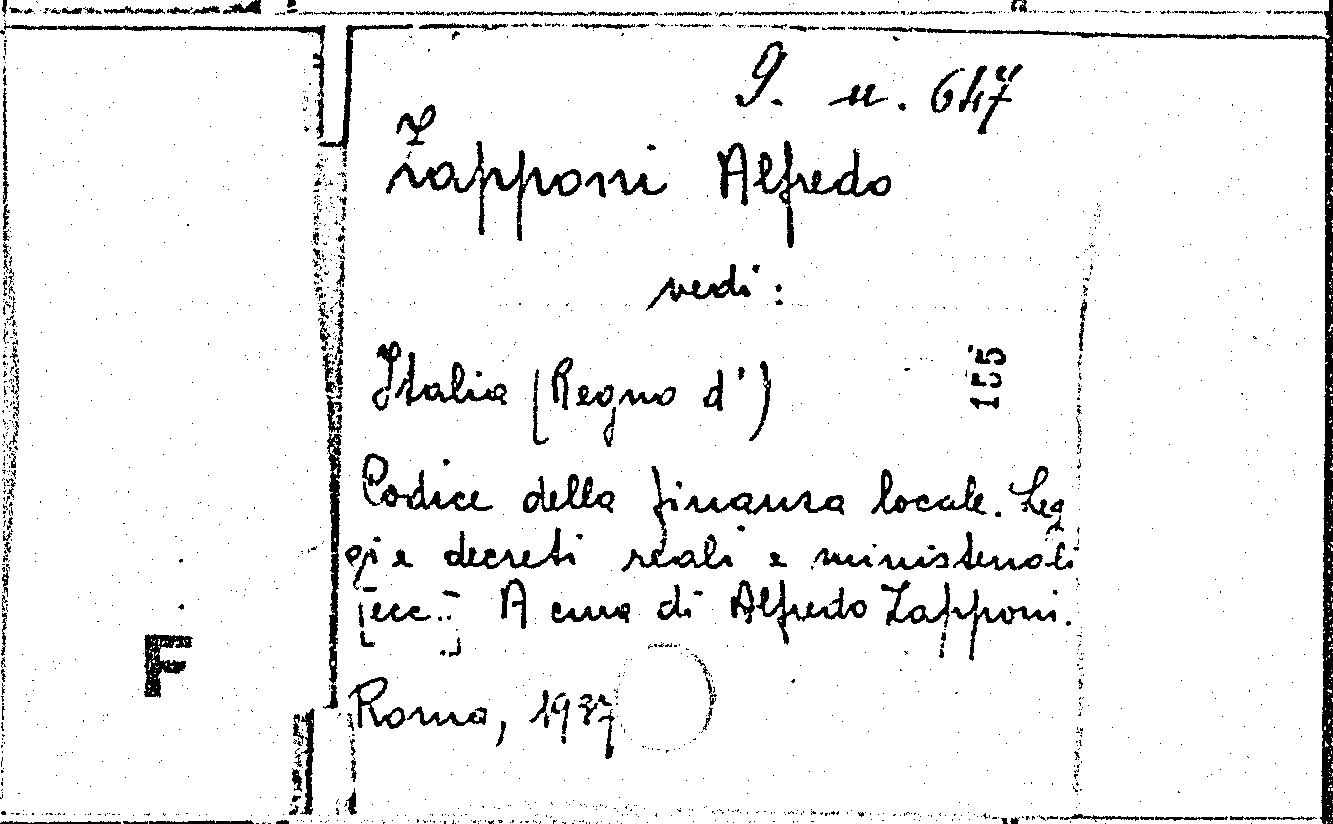 9. u. 647
Zapponi Alfredo
vedi:
Italia (Regno d')
155
Codice della finanza locale. Leg
gi e decreti reali e ministeriali
[ecc..] A cura di Alfredo Zapponi.
F
Roma, 1937